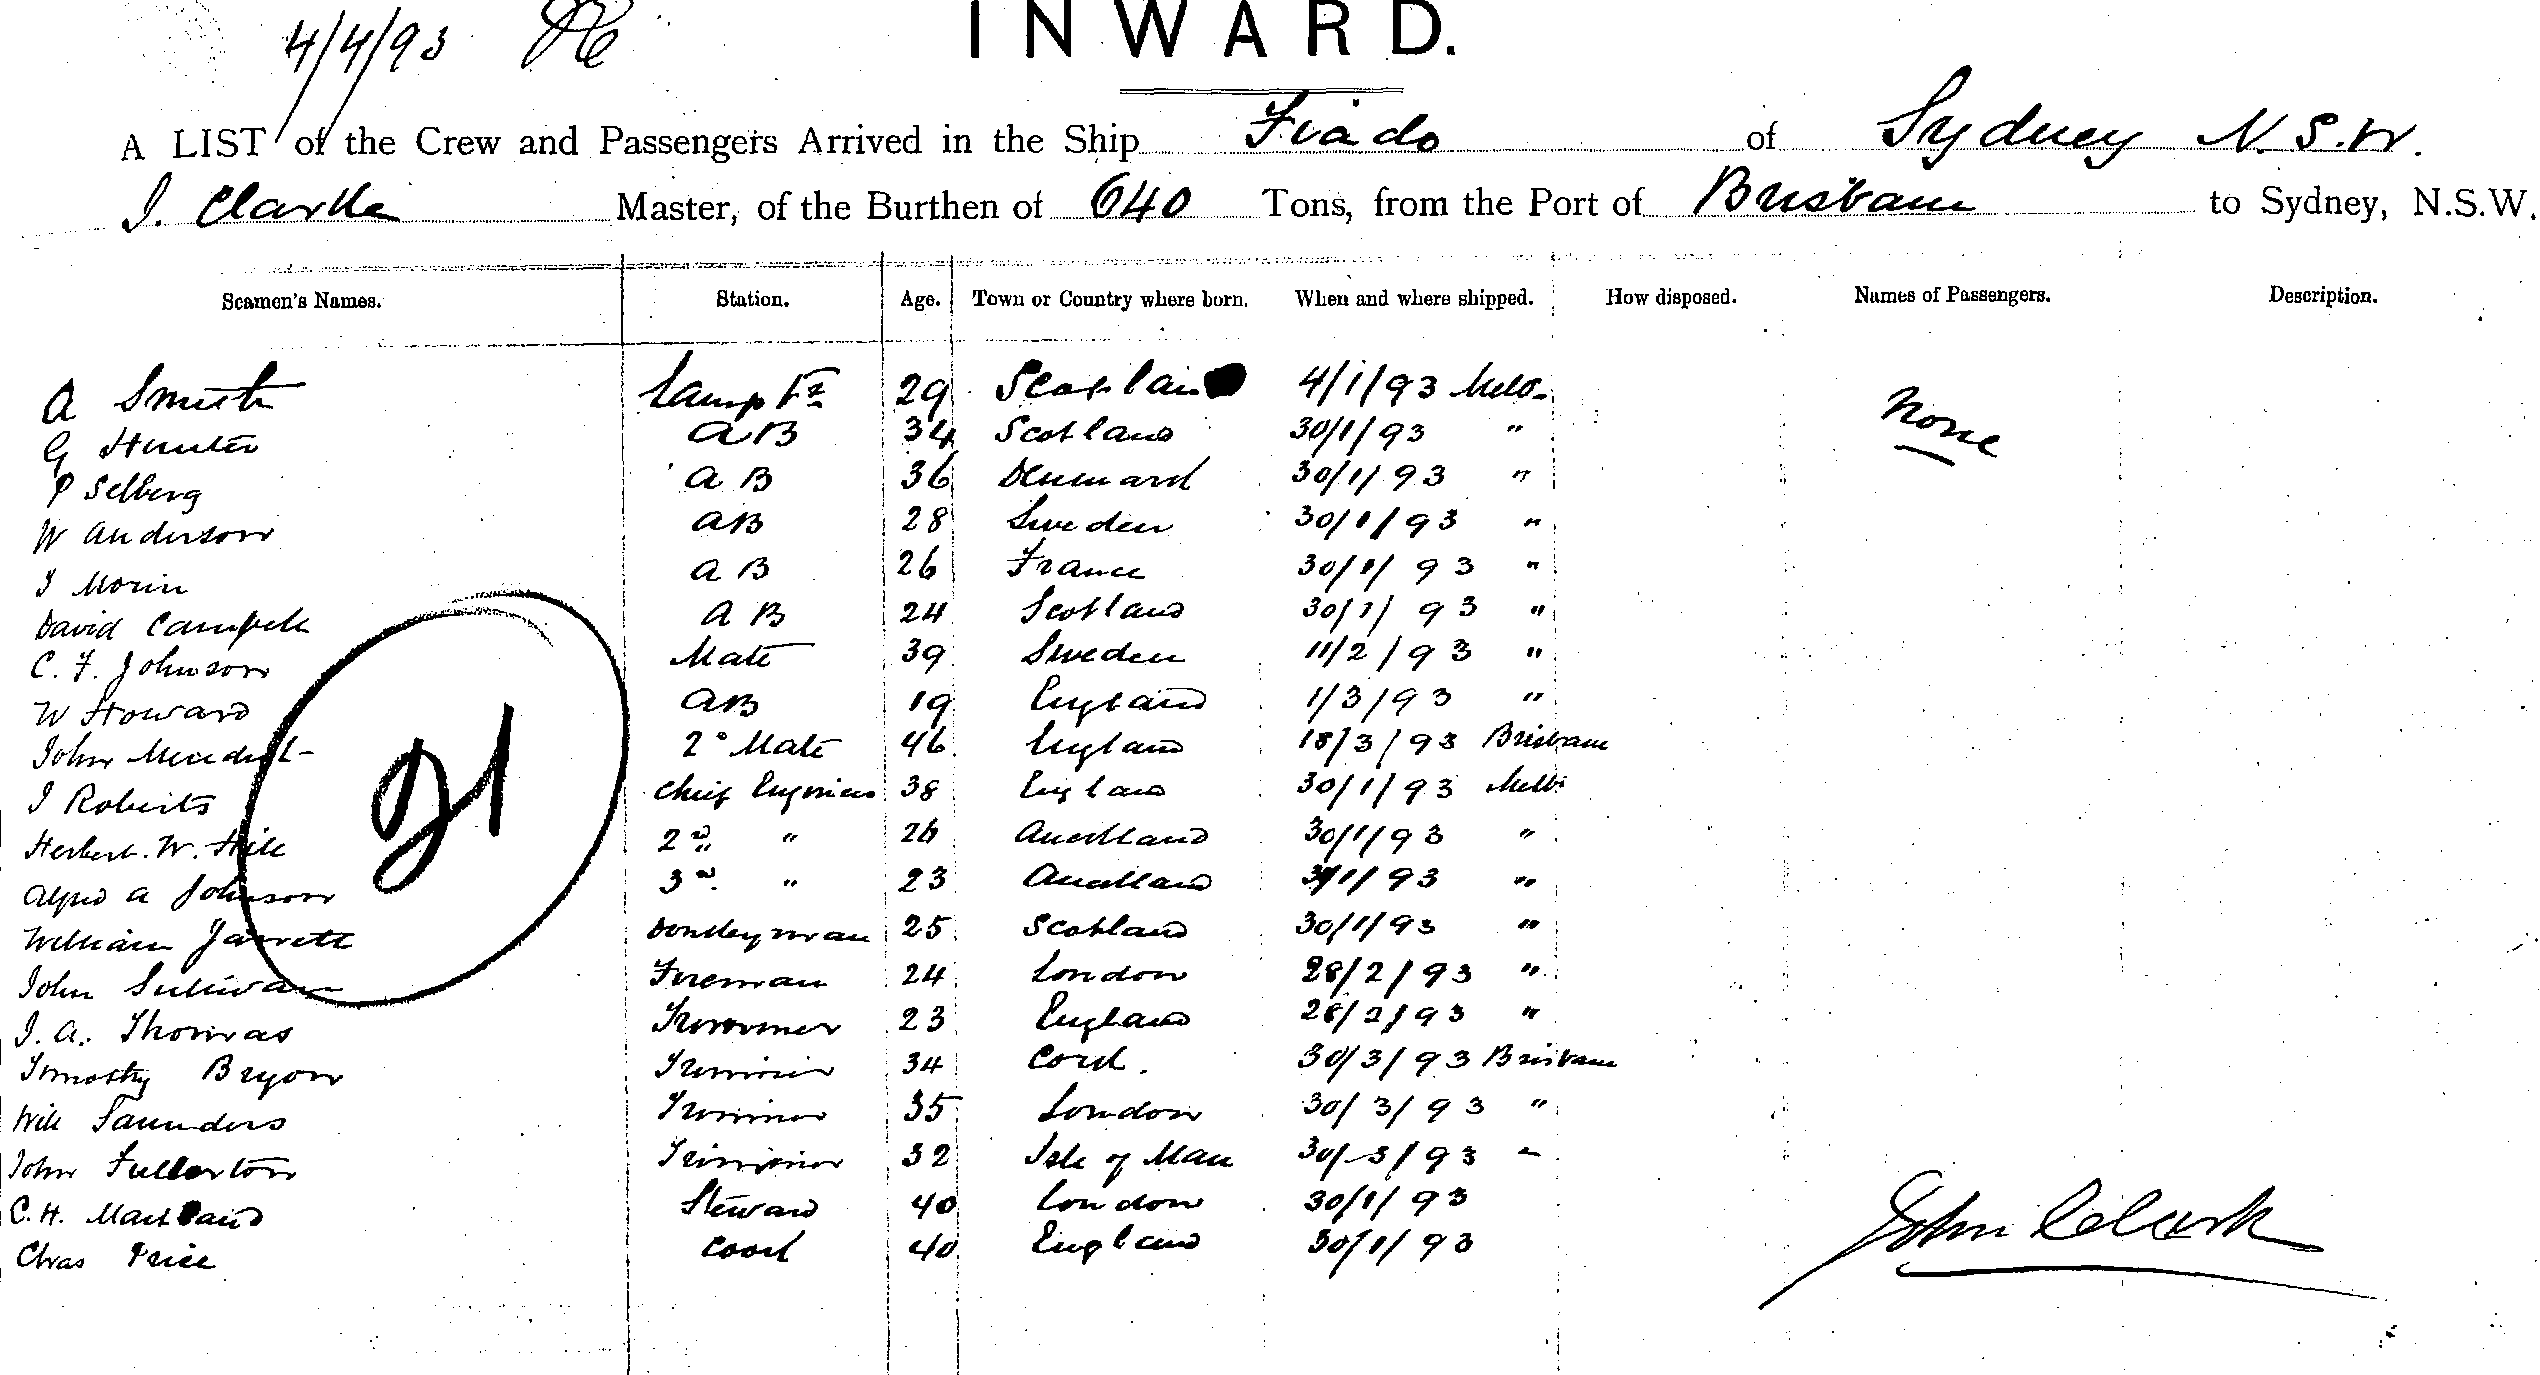 4/4/93
INWARD.
A LIST of the Crew and Passengers Arrived in the Ship Fiado of Sydney N.S.W.
J. Clarke Master, of the Burthen of 640 Tons, from the Port of Brisbane to Sydney, N.S.W.
Seamen's Names. Station. Age. Town or Country where born. When and where shipped. How disposed. Names of Passengers. Description.
A Smith Lamp Tr 29 Scotland 4/1/93 Melb. None
G Hunter AB 34 Scotland 30/1/93 "
P Selberg AB 36 Denmark 30/1/93 "
W Anderson AB 28 Sweden 30/1/93 "
J Morin AB 26 France 30/1/93 "
David Campbell AB 24 Scotland 30/1/93 "
C. F. Johnson Mate 39 Sweden 11/2/93 "
W Howard AB 19 England 1/3/93 "
John 2d Mate 46 England 18/3/93 Brisbane
J Roberts Chief Engineer 38 England 30/1/93 Melb
Herbert. W. Hill 2nd " 26 Auckland 30/1/93 "
Alfred A Johnson 3rd " 23 Auckland 30/1/93 "
William Jarrett Donkeyman 25 Scotland 30/1/93 "
John Sullivan Fireman 24 London 28/2/93 "
J. A. Thomas Trimmer 23 England 28/2/93 "
Timothy Bryon Trimmer 34 Cork. 30/3/93 Brisbane
Will Saunders Trimmer 35 London 30/3/93 "
John Fullerton Trimmer 32 Isle of Man 30/3/93 "
C. H. Steward 40 London 30/1/93
Chas Price Cook 40 England 30/1/93
21
John Clark